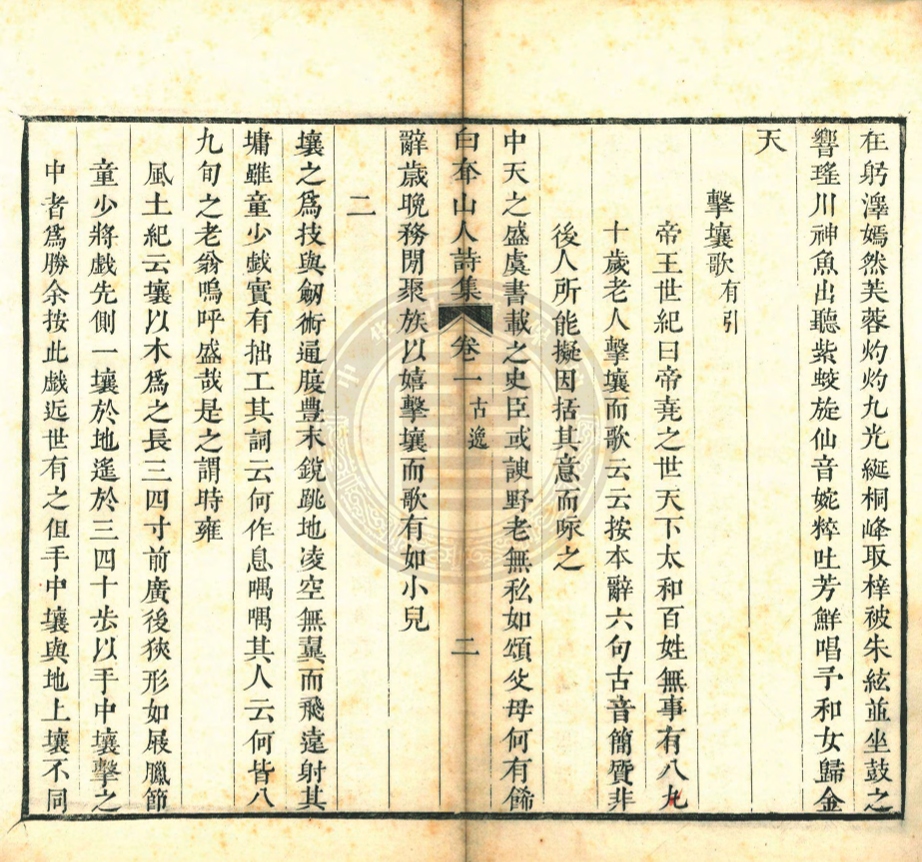 在躬澤嫣然芙蓉灼灼九光綖桐峰取梓被朱絃並坐鼓之
響瑤川神魚出聽紫蛟旋仙音婉粹吐芳鮮唱予和女歸金
天
擊壤歌有引
帝王世紀曰帝堯之世天下太和百姓無事有八九
十歲老人擊壤而歌云云按本辭六句古音簡質非
後人所能擬因括其意而咏之
中天之盛虞書載之史臣或諛野老無私如頌父母何有餙
白夲山人詩集 卷一 古逸 二
辭歲晚務閒聚族以嬉擊壤而歌有如小兒
二
壤之爲技與劒術通腹豊末銳跳地凌空無翼而飛遠射其
墉雖童少戲實有拙工其詞云何作息喁喁其人云何皆八
九旬之老翁嗚呼盛哉是之謂時雍
風土紀云壤以木爲之長三四寸前廣後狹形如屐臘節
童少將戲先側一壤於地遙於三四十步以手中壤擊之
中者爲勝余按此戲近世有之但手中壤與地上壤不同